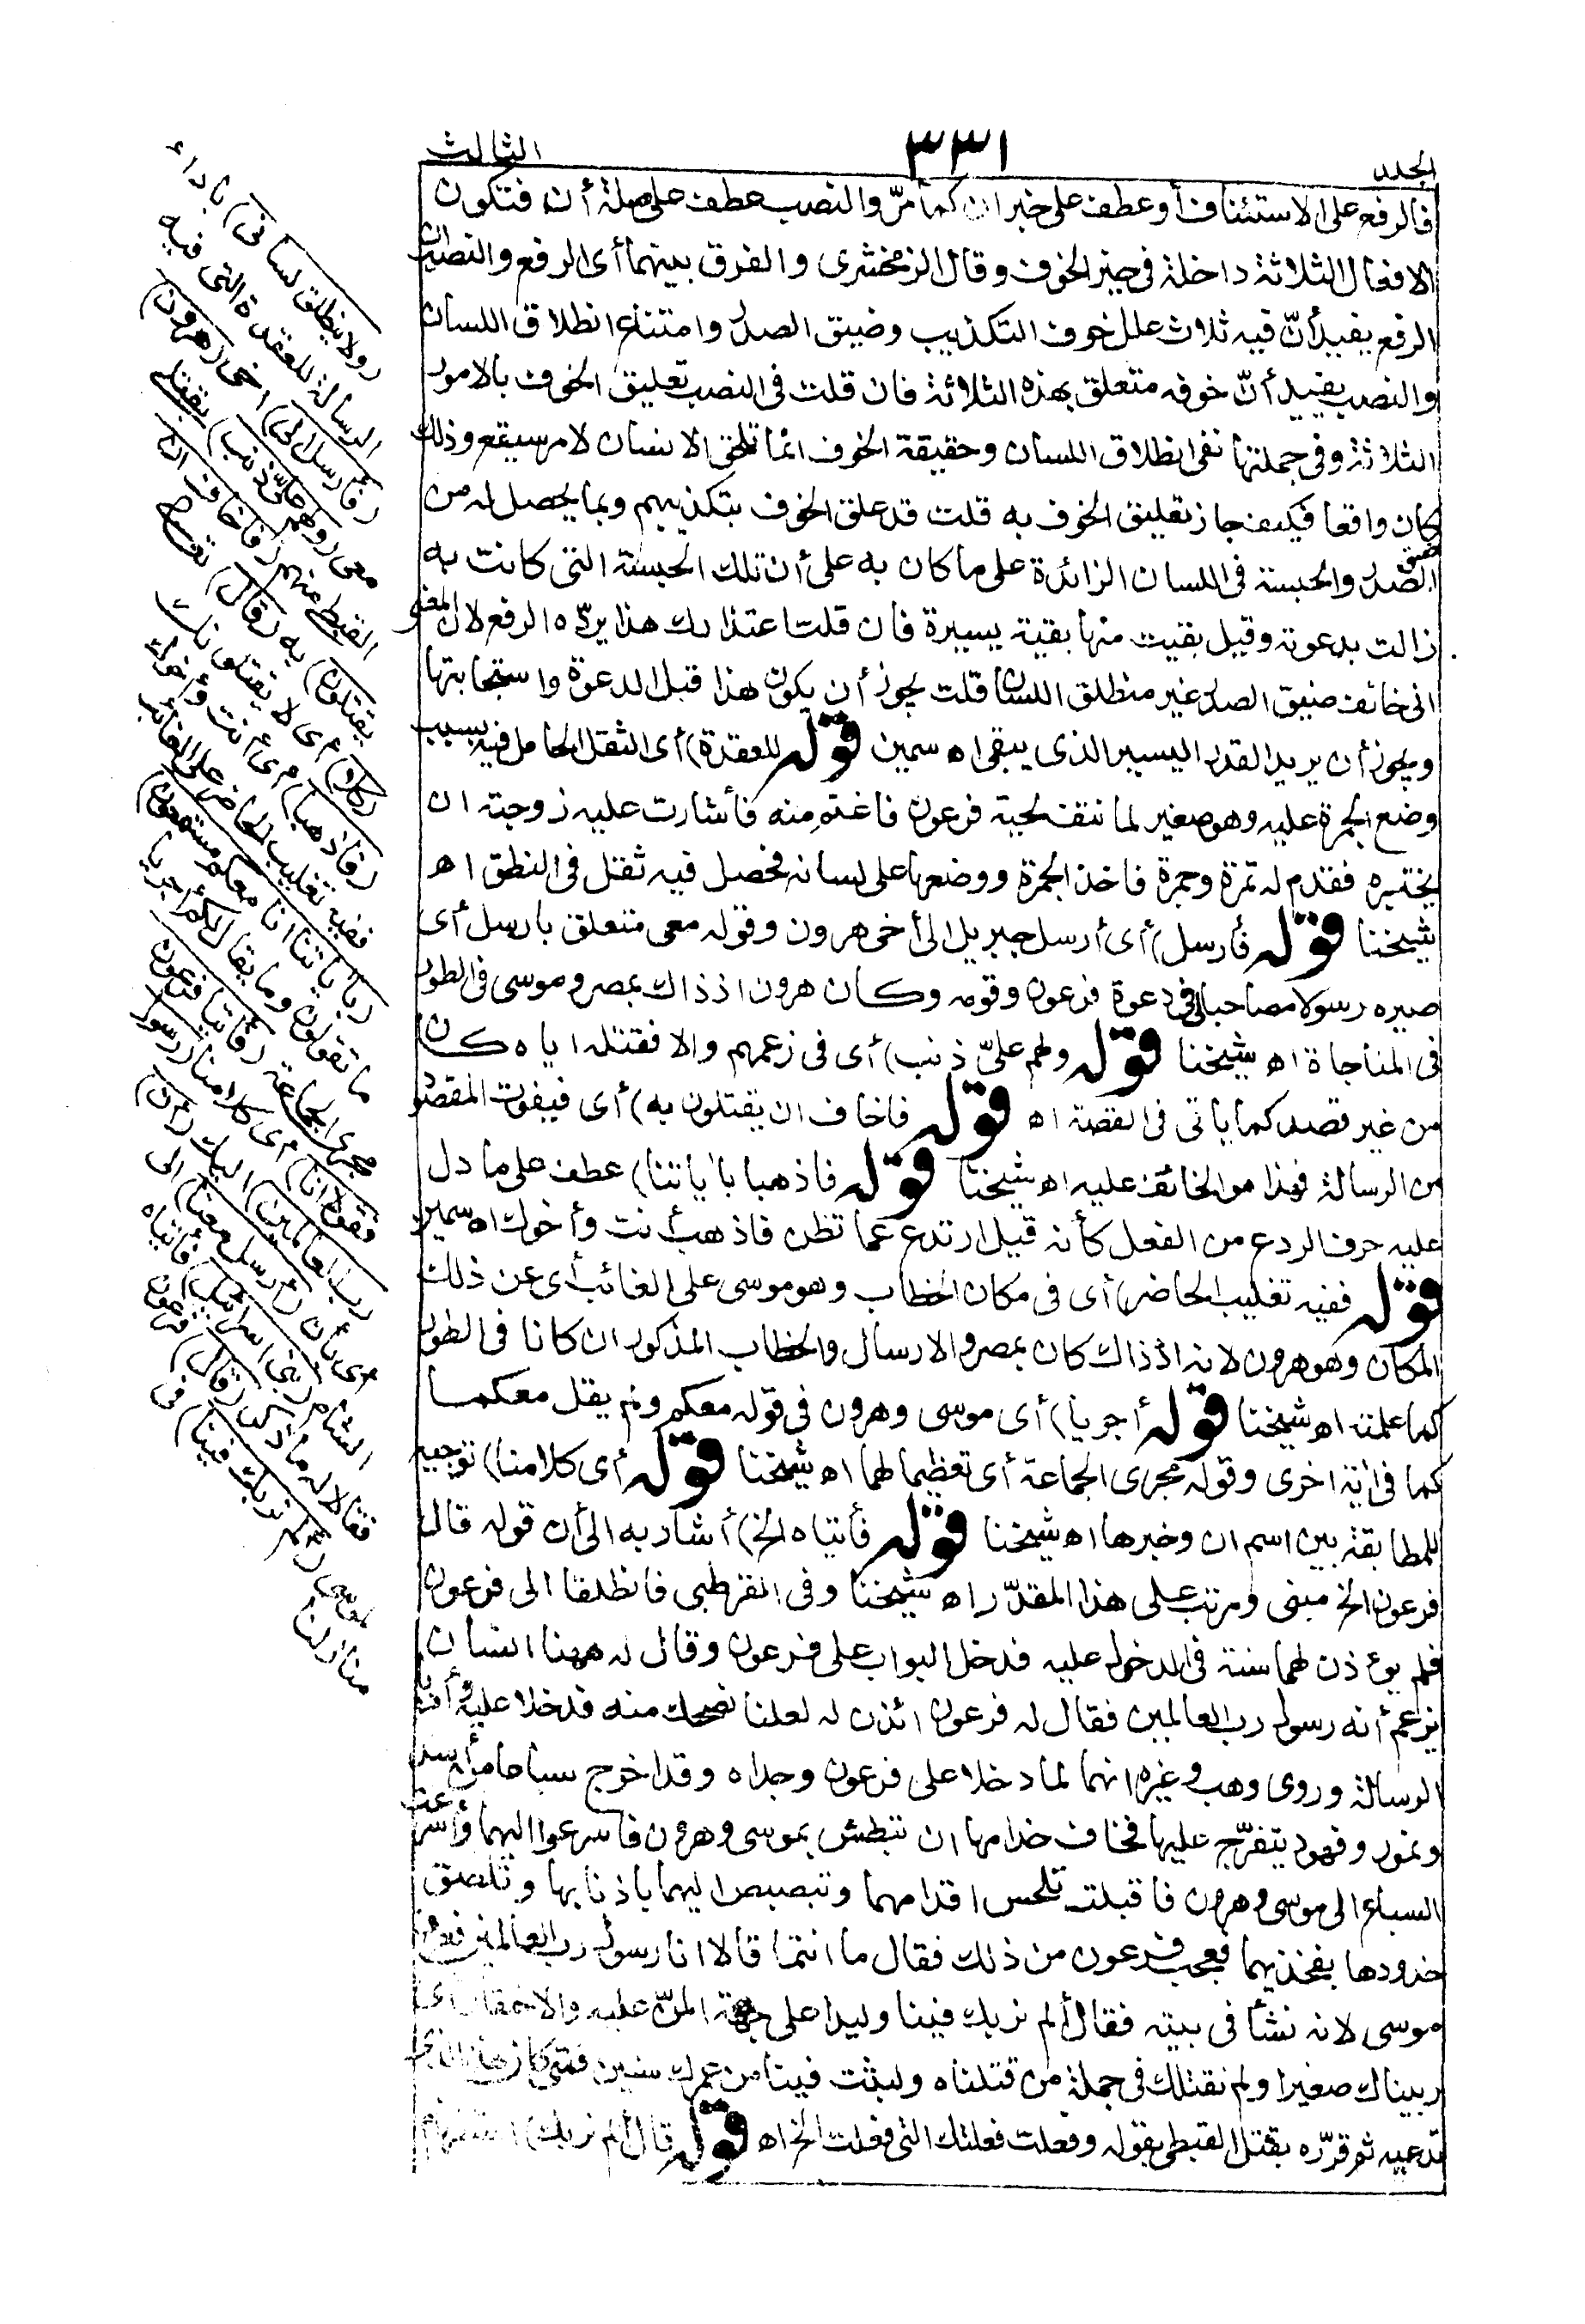 الجلد
٣٣١
الثالث
فالرفع على الاستئناف أو عطف على خبر ان كما مرّ والنصب عطف على صلة أن فتكون
الافعال الثلاثة داخلة فى حيز الخوف وقال الزمخشرى والفرق بينهما أى الرفع والنصب ان
الرفع يفيد أنّ فيه ثلاث علل خوف التكذيب وضيق الصدر وامتناع انطلاق اللسان
والنصب يفيد أنّ خوفه متعلق بهذه الثلاثة فان قلت فى النصب تعليق الخوف بالامور
الثلاثة وفى جملتها نفى انطلاق اللسان وحقيقة الخوف انما تلحق الانسان لامر سيقع وذلك
كان واقعا فكيف جاز تعليق الخوف به قلت قد علق الخوف بتكذيبهم وبما يحصل له من
ضيق الصدر والحبسة فى اللسان الزائدة على ما كان به على أن تلك الحبسة التى كانت به
زالت بدعوته وقيل بقيت منها بقية يسيرة فان قلت اعتذارك هذا يردّه الرفع لان المعنى
انى خائف ضيق الصدر غير منطلق اللسان قلت يجوز أن يكون هذا قبل الدعوة واستجابتها
ويجوز أن يريد القدر اليسير الذى يبقى اه سمين قوله للعقدة) أى الثقل الحاصل فيه بسبب
وضع الجمرة عليه وهو صغير لما نتف لحية فرعون فاغتم منه فأشارت عليه زوجته ان
يختبره فقدم له تمرة وجمرة فاخذ الجمرة ووضعها على لسانه فحصل فيه ثقل فى النطق اه
شيخنا قوله فأرسل) أى أرسل جبريل الى أخى هرون وقوله معى متعلق بارسل أى
صيره رسولا مصاحبا لى فى دعوة فرعون وقومه وكان هرون اذ ذاك بمصر وموسى فى الطور
فى المناجاة اه شيخنا قوله ولهم علىّ ذنب) أى فى زعمهم والا فقتله اياه كان
من غير قصد كما يأتى فى القصة اه قوله فاخاف ان يقتلون به) أى فيفوت المقصود
من الرسالة فهذا هو الخائف عليه اه شيخنا قوله فاذهبا بآياتنا) عطف على ما دل
عليه حرف الردع من الفعل كأنه قيل ارتدع عما تظن فاذهب أنت وأخوك اه سمين
قوله ففيه تغليب الحاضر) أى فى مكان الخطاب وهو موسى على الغائب أى عن ذلك
المكان وهو هرون لانه اذ ذاك كان بمصر والارسال والخطاب المذكور ان كانا فى الطور
كما علمت اه شيخنا قوله أجريا) أى موسى وهرون فى قوله معكم ولم يقل معكما
كما فى آية اخرى وقوله مجرى الجماعة أى تعظيما لهما اه شيخنا قوله أى كلامنا) توجيه
للمطابقة بين اسم ان وخبرها اه شيخنا قوله فأتياه الخ) أشار به الى أن قوله قال
فرعون الخ مبنى ومرتب على هذا المقدّر اه شيخنا وفى القرطبى فانطلقا الى فرعون
فلم يؤذن لهما سنة فى الدخول عليه فدخل البواب على فرعون وقال له ههنا انسان
يزعم أنه رسول رب العالمين فقال له فرعون ائذن له لعلنا نضحك منه فدخلا عليه وأديا
الرسالة وروى وهب وغيره انهما لما دخلا على فرعون وجداه وقد اخرج سباعا من أسد
ونمور وفهود يتفرّج عليها فخاف خدامها ان تبطش بموسى وهرون فاسرعوا اليهما وأسرعت
السباع الى موسى وهرون فاقبلت تلحس اقدامهما وتبصبص اليهما باذنابها وتلصق
خدودها بفخذيهما فعجب فرعون من ذلك فقال ما انتما قالا انا رسول رب العالمين فعرف
موسى لانه نشأ فى بيته فقال ألم نربك فينا وليدا على جهة المنّ عليه والاحتقار أى
ربيناك صغيرا ولم نقتلك فى جملة من قتلناه ولبثت فينا من عمرك سنين فمتى كان هذا الذى
تدعيه ثم قرّره بقتل القبطى بقوله وفعلت فعلتك التى فعلت الخ اه قوله قال ألم نربك) استفهام
(ولا ينطلق لسانى) باداء
الرسالة للعقدة التى فيه
(فأرسل الى) أخى (هرون)
معى (ولهم علىّ ذنب) بقتل
القبطى منهم (فاخاف ان
يقتلون) به (قال) تعالى
(كلا) أى لا يقتلونك
(فاذهبا) أى أنت وأخوك
ففيه تغليب الحاضر على الغائب
(بآياتنا انا معكم مستمعون)
ما تقولون وما يقال لكم أجريا
مجرى الجماعة (فأتيا فرعون
فقولا انا) أى كلا منا (رسول
رب العالمين) اليك (أن)
أى بأن (أرسل معنا) الى
الشام (بنى اسرائيل) فأتياه
فقالا له ما ذكر (قال) فرعون
لموسى (ألم نربك فينا) فى
منازلنا